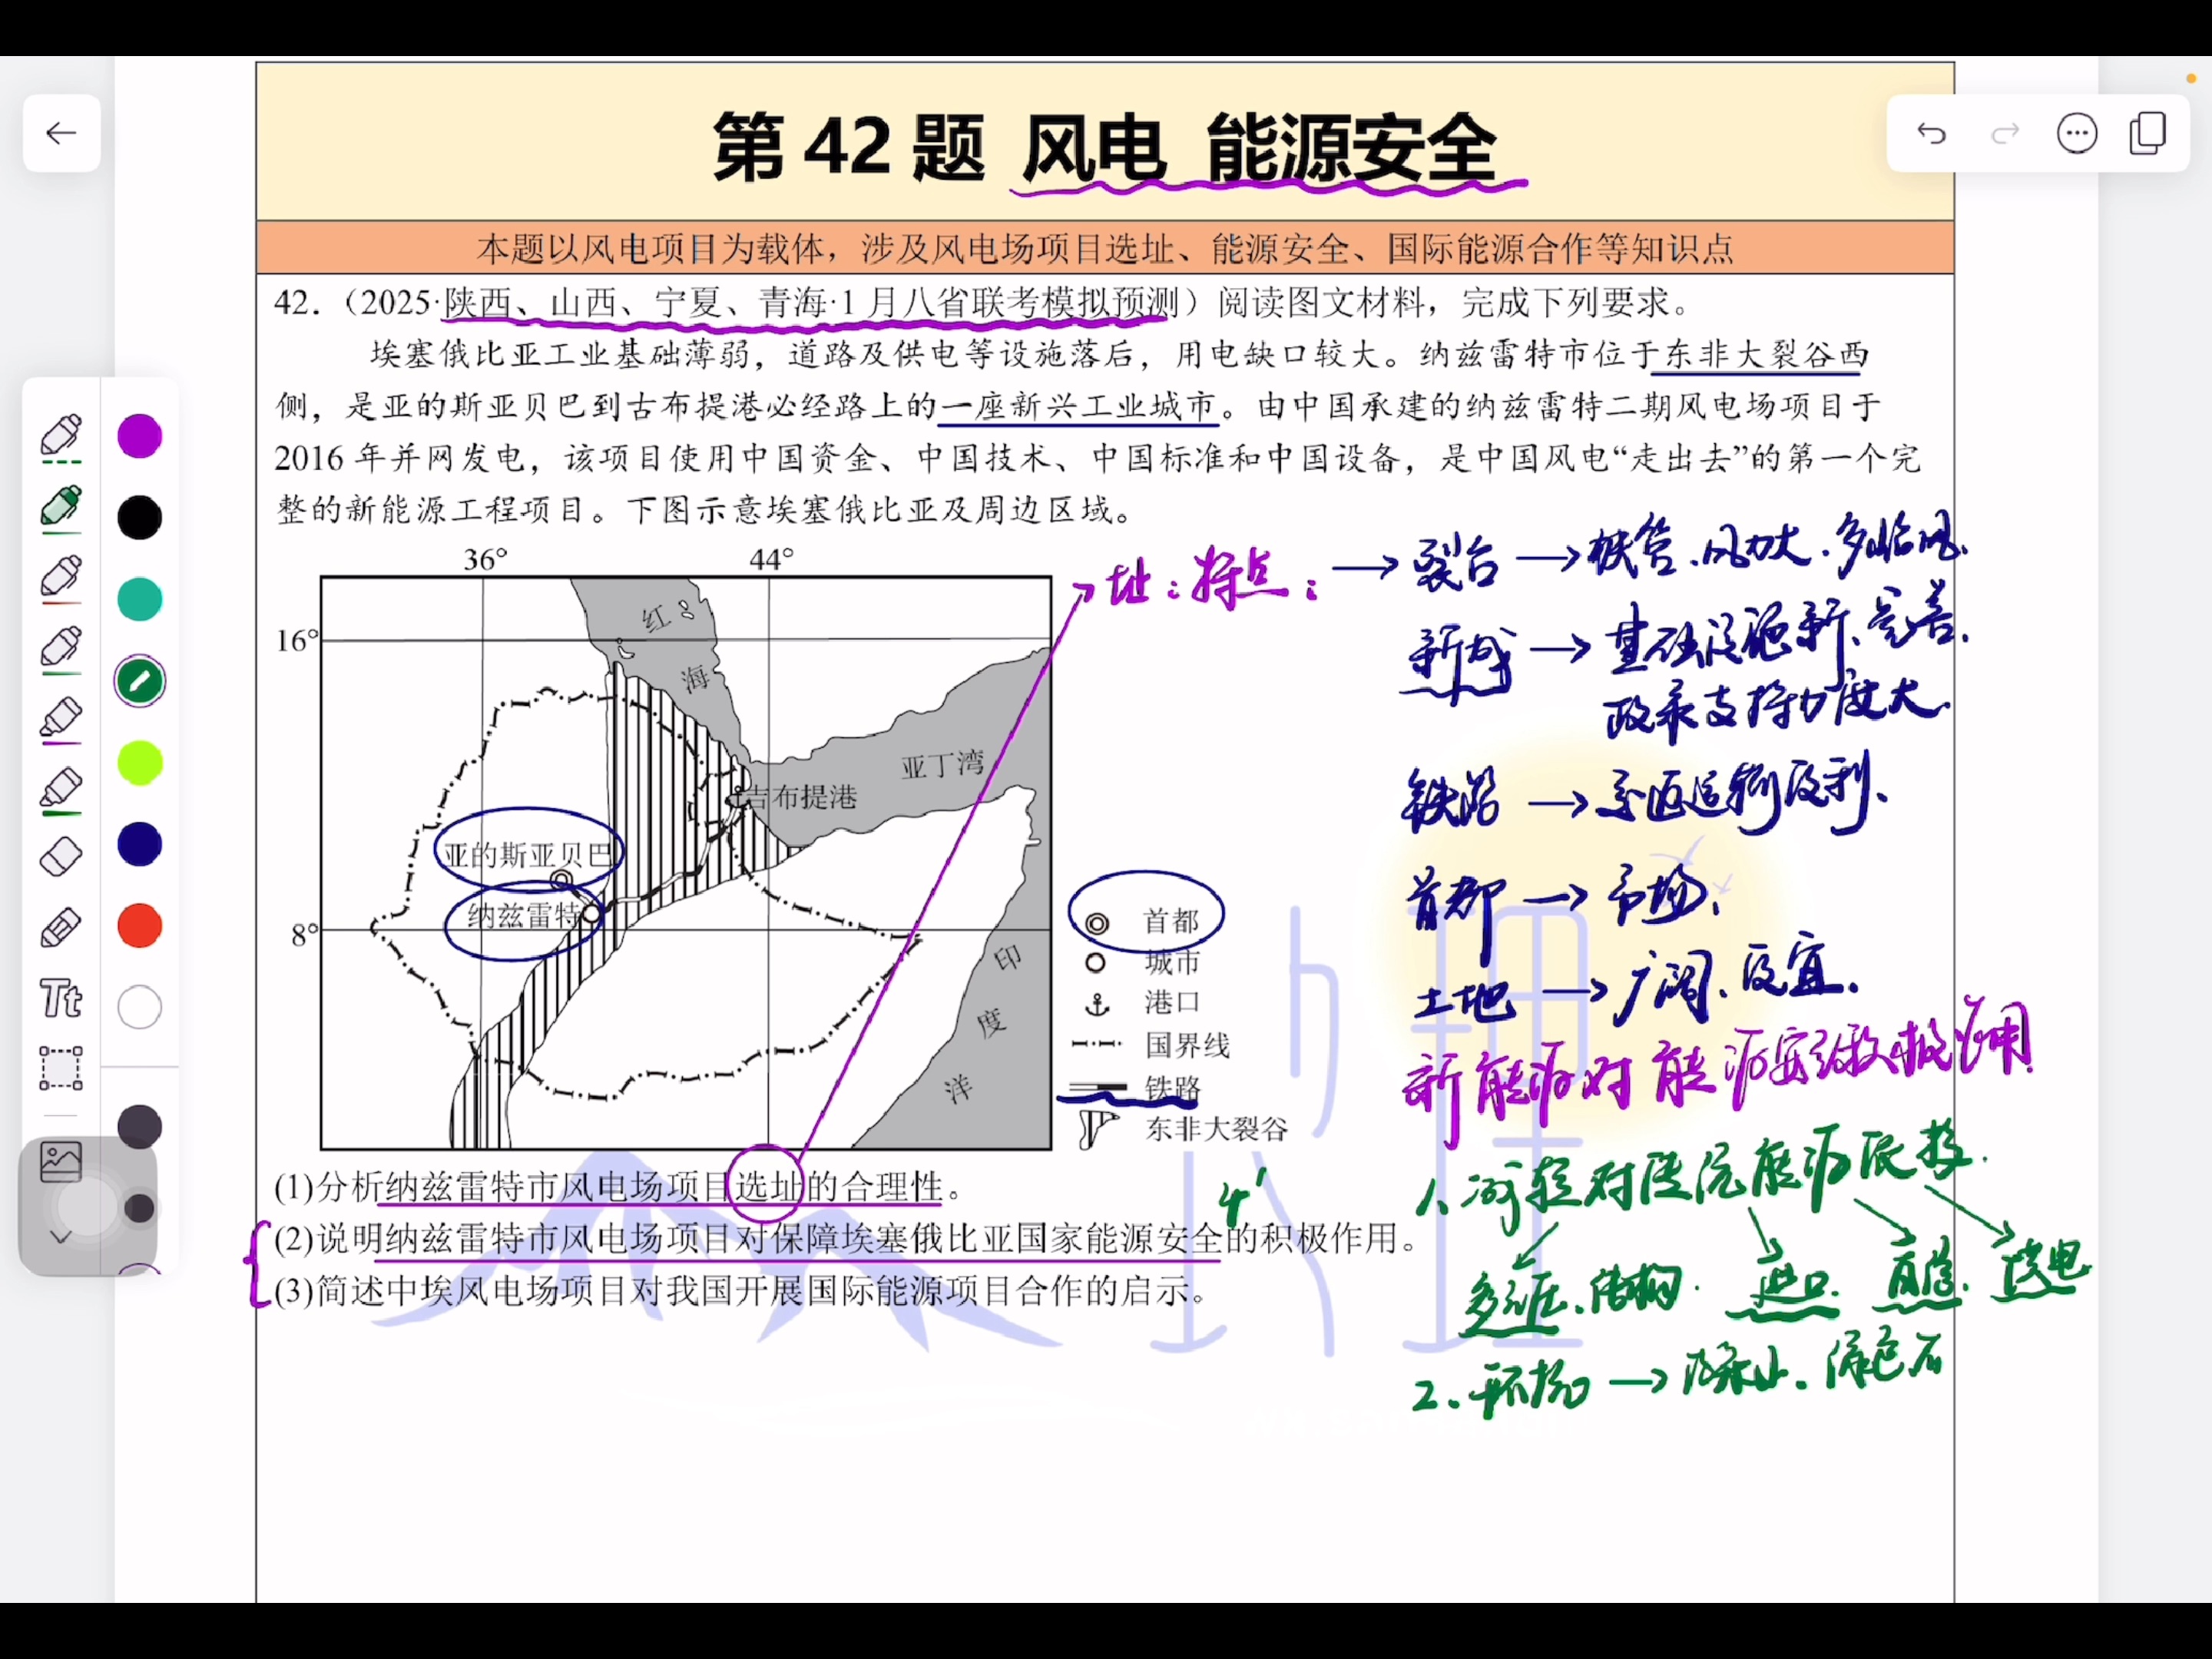 第 42 题 风电 能源安全
本题以风电项目为载体，涉及风电场项目选址、能源安全、国际能源合作等知识点
42．（2025·陕西、山西、宁夏、青海·1 月八省联考模拟预测）阅读图文材料，完成下列要求。
埃塞俄比亚工业基础薄弱，道路及供电等设施落后，用电缺口较大。纳兹雷特市位于东非大裂谷西
侧，是亚的斯亚贝巴到吉布提港必经路上的一座新兴工业城市。由中国承建的纳兹雷特二期风电场项目于
2016 年并网发电，该项目使用中国资金、中国技术、中国标准和中国设备，是中国风电“走出去”的第一个完
整的新能源工程项目。下图示意埃塞俄比亚及周边区域。
36° 44°
16°
8°
红海
亚丁湾
吉布提港
亚的斯亚贝巴
纳兹雷特
印度洋
首都
城市
港口
国界线
铁路
东非大裂谷
址：特点：
→ 裂谷 → 狭管、风力大
新城 → 基础设施新、完善、
政策支持力度大、
铁路 → 交通运输便利、
首都 → 市场、
土地 → 广阔、便宜、
新能源对能源安全积极作用
(1)分析纳兹雷特市风电场项目选址的合理性。
4'
(2)说明纳兹雷特市风电场项目对保障埃塞俄比亚国家能源安全的积极作用。
(3)简述中埃风电场项目对我国开展国际能源项目合作的启示。
1、减轻对传统能源依赖.
多元、结构. 进口.
2、环境 →
Tt